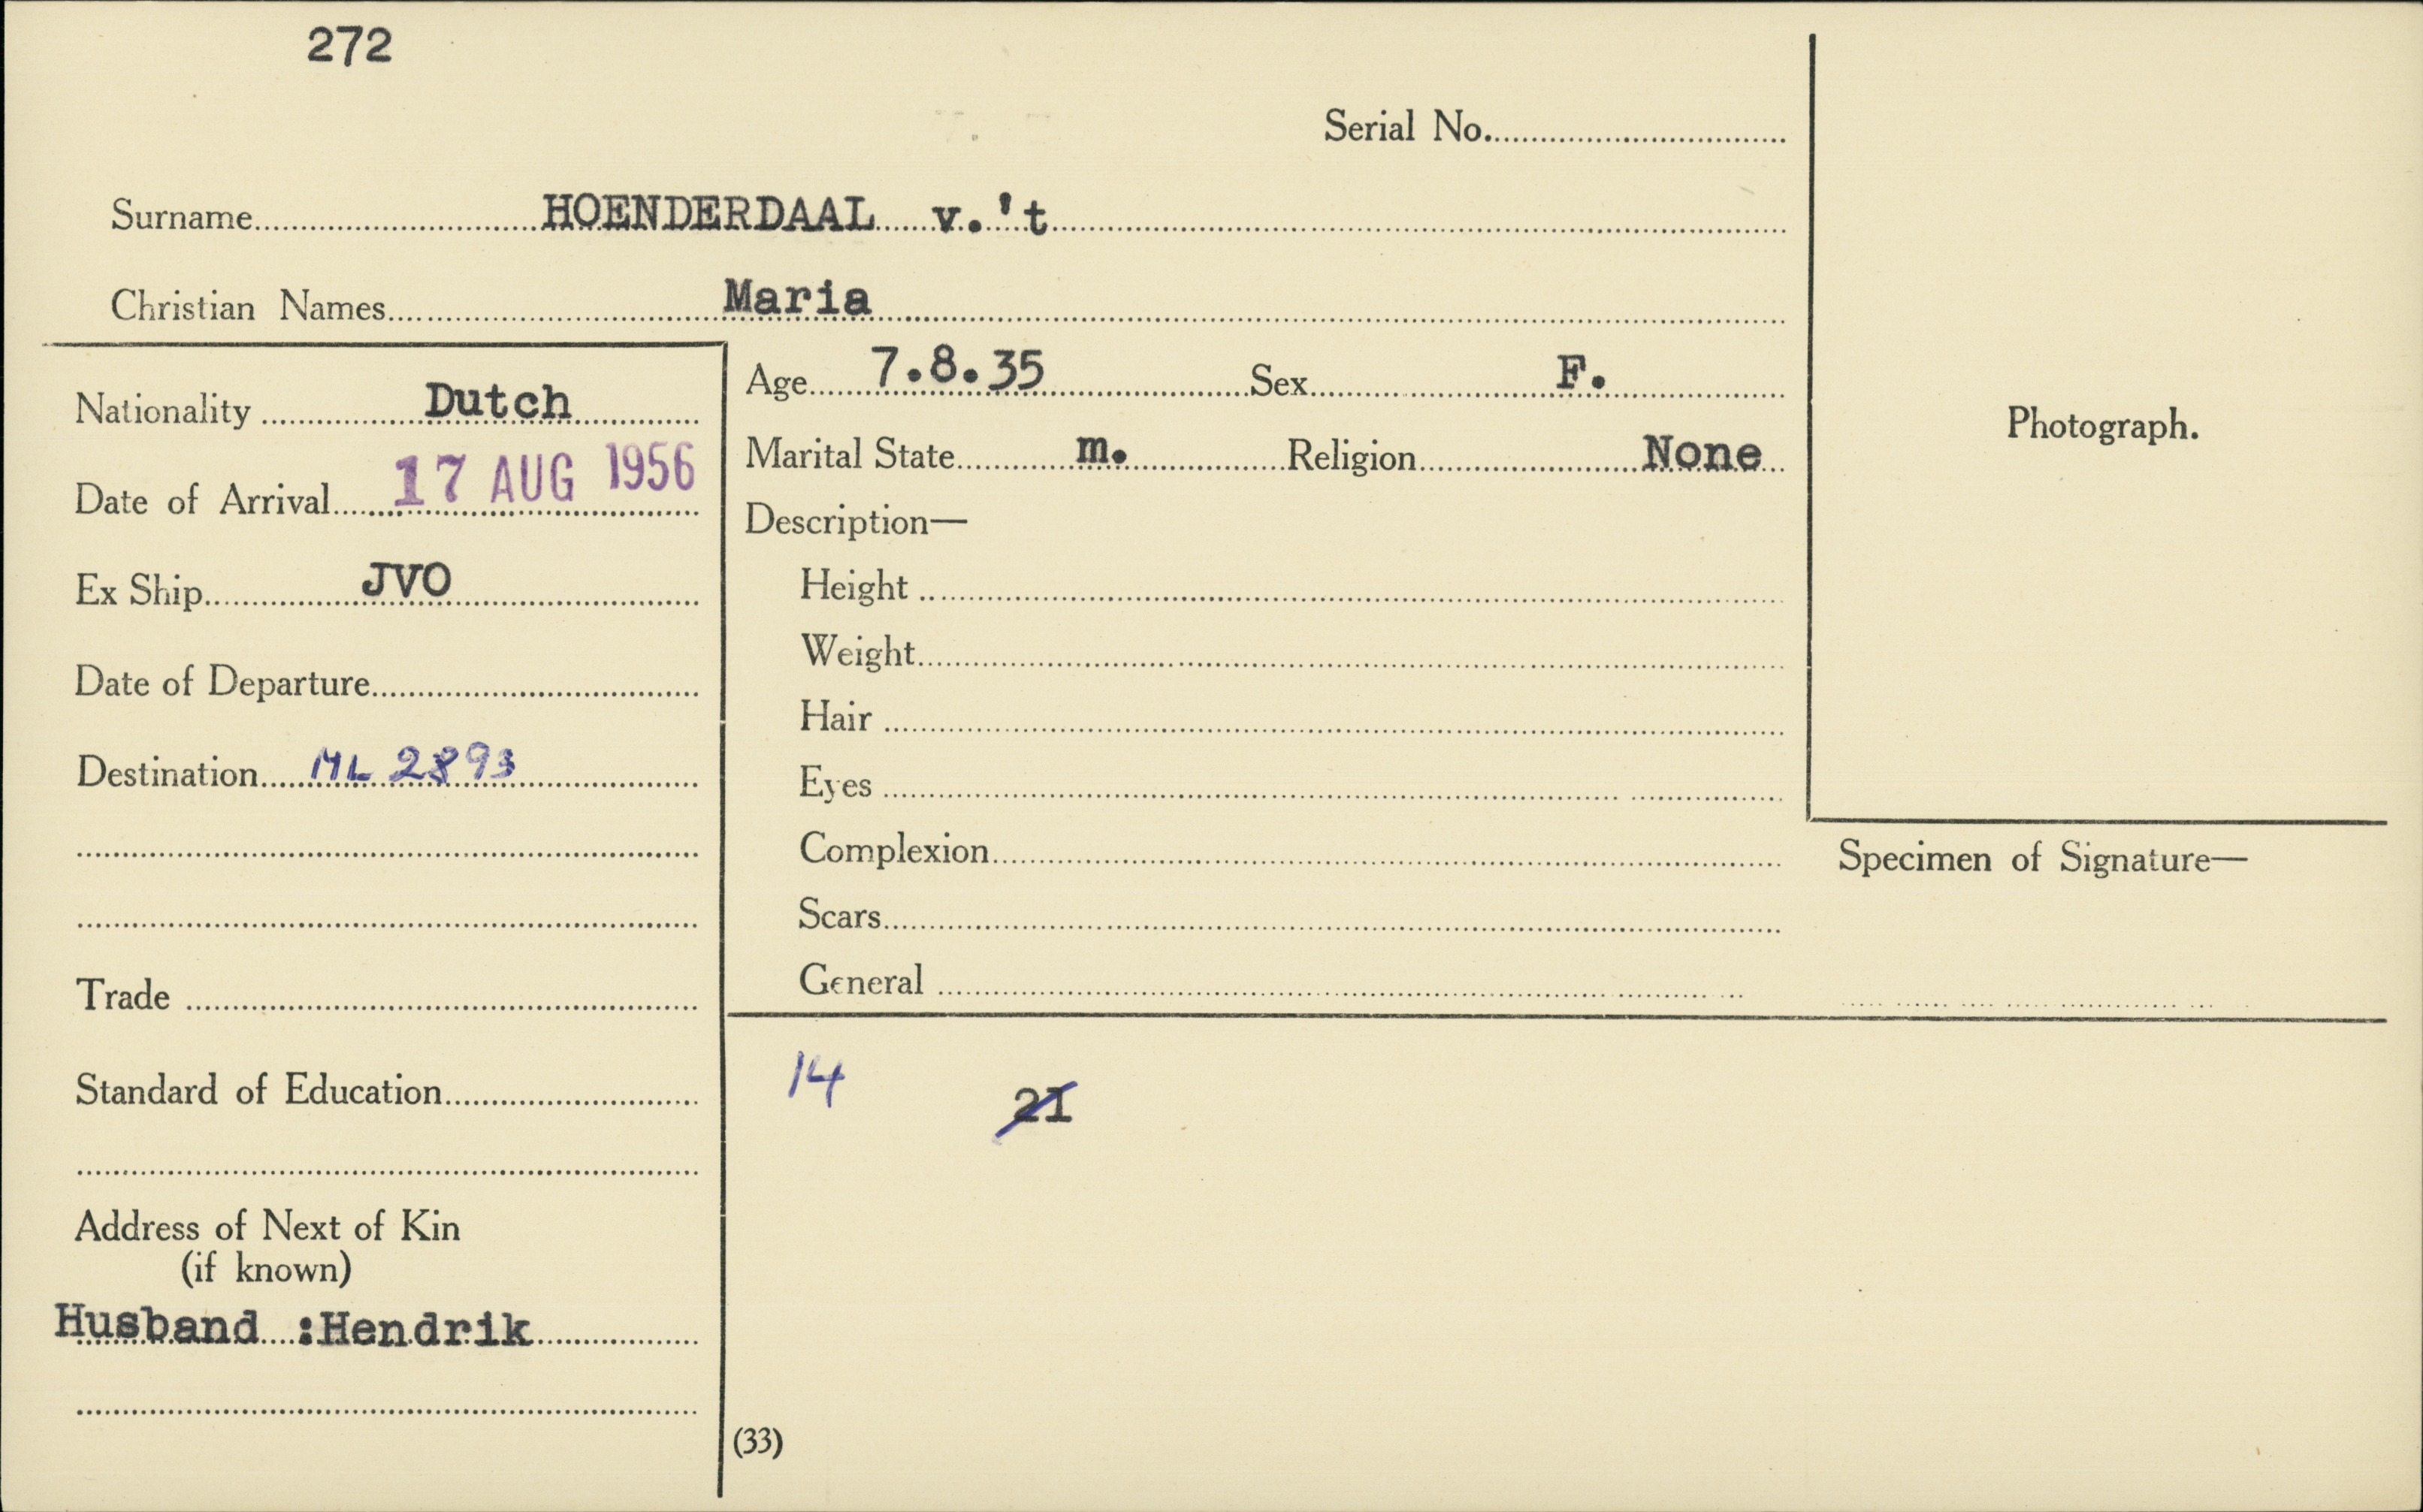 272
Serial No.
Surname HOENDERDAAL v.'t
Christian Names Maria
Nationality Dutch
Date of Arrival 17 AUG 1956
Ex Ship JVO
Date of Departure
Destination ML 2893
Trade
Standard of Education
Address of Next of Kin
(if known)
Husband :Hendrik
Age 7.8.35 Sex F.
Marital State m. Religion None
Description—
Height
Weight
Hair
Eyes
Complexion
Scars
General
Photograph.
Specimen of Signature—
14 21
(33)